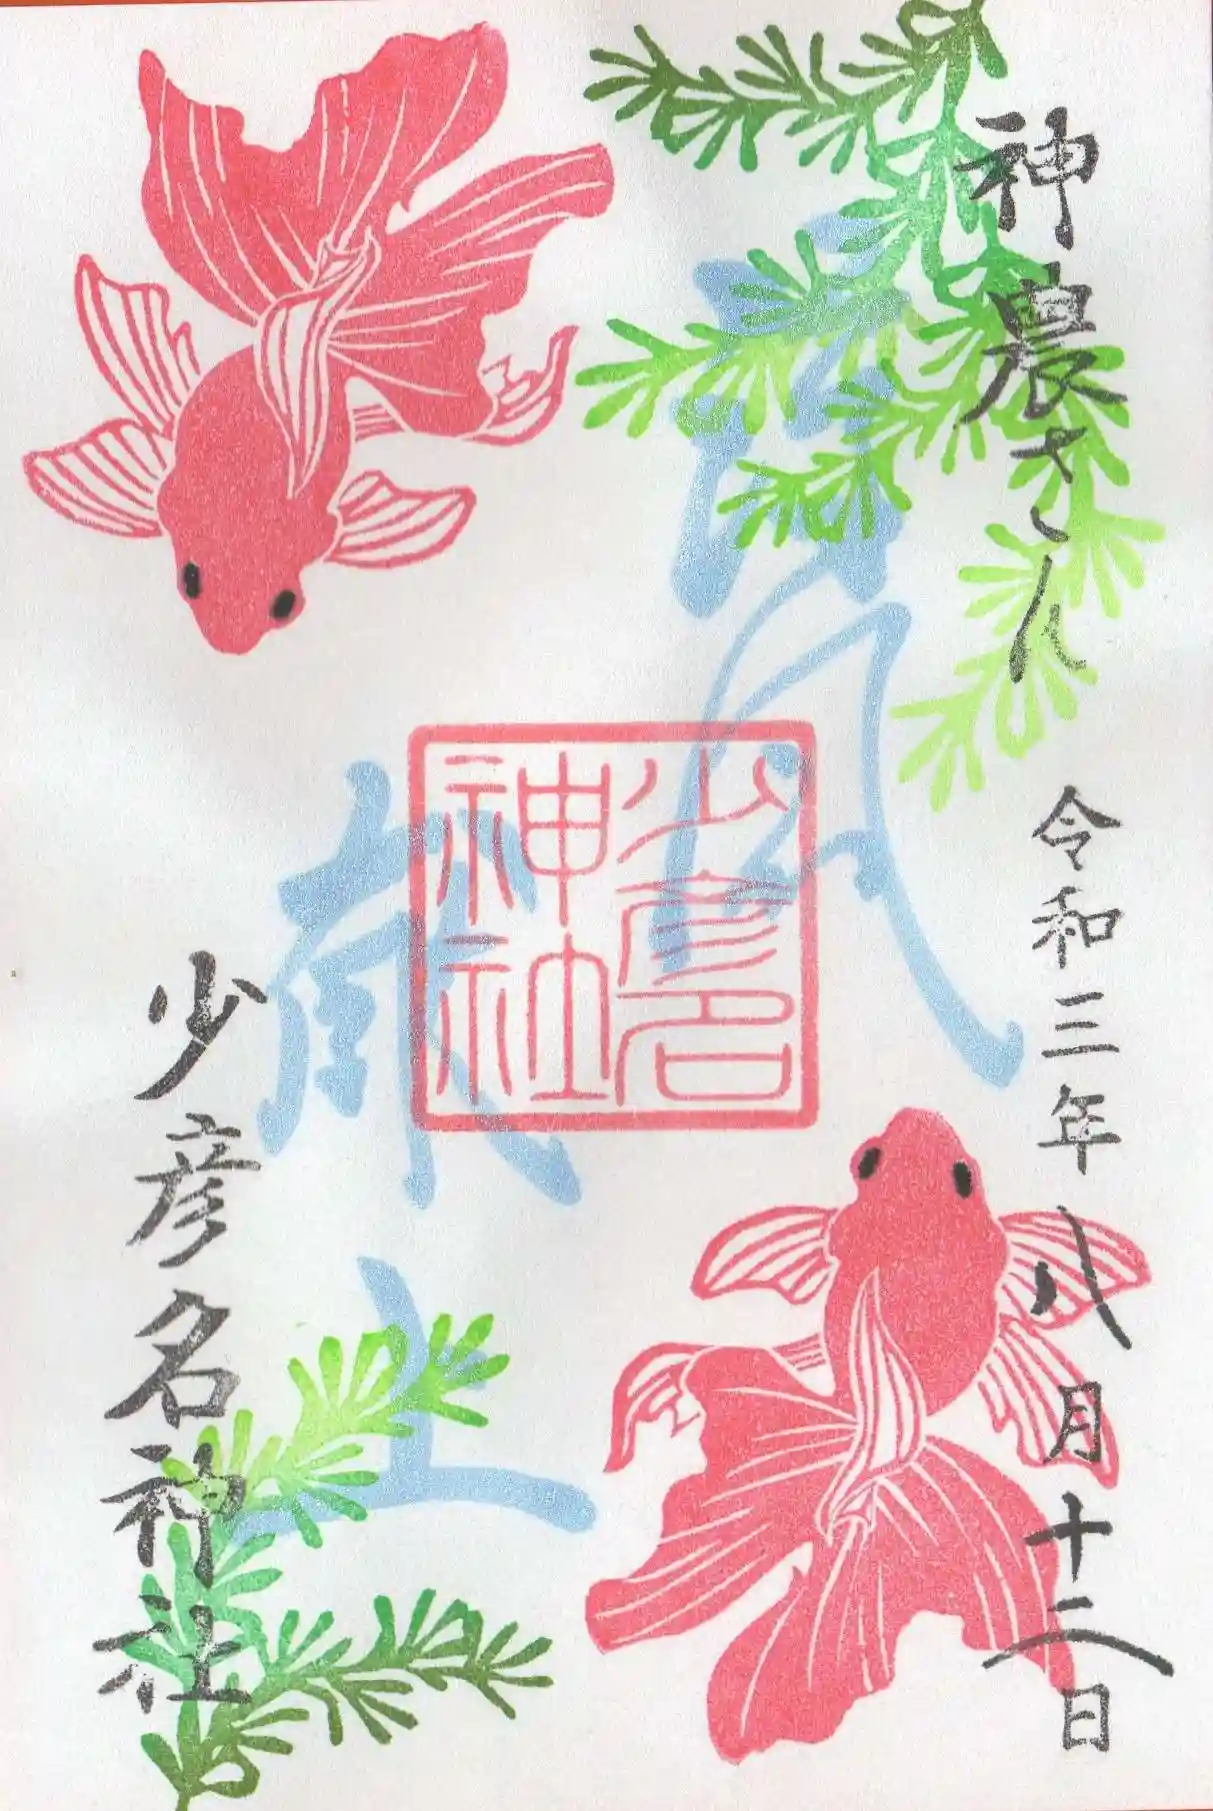 神農さん
令和三年八月十二日
涼風
献上
少彦名
神社
少彦名神社